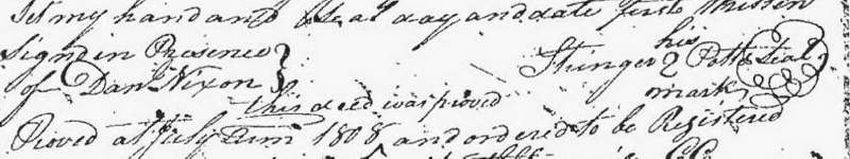 Set my hand and Seal day and date first written
Signd in Presence } his
of Danl. Nixon } Stringer 2 Potts Seal
mark
This deed was proved
Proved at July Term 1808 and ordered to be Registered